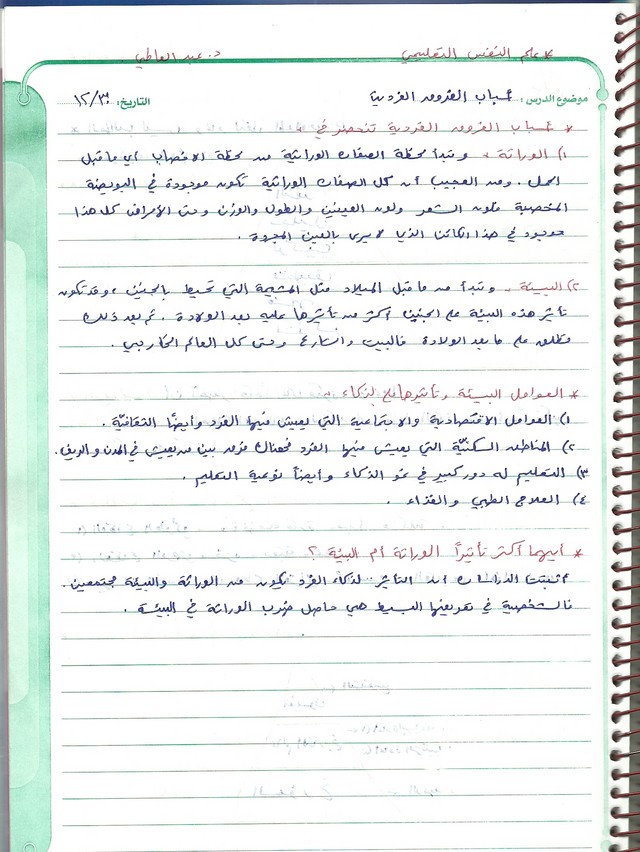 * علم النفس التعليمي د. عبد العاطي
موضوع الدرس : أسباب الفروق الفردية التاريخ: ١٢/٣٠
* أسباب الفروق الفردية تنحصر في :
١) الوراثة : وتبدأ محطة الصفات الوراثية من محطة الاخصاب أي ما قبل
الحمل . ومن العجيب أن كل الصفات الوراثية تكون موجودة في البويضة
المخصبة فلون الشعر ولون العينين والطول والوزن وحتى الأمراض كل هذا
موجود في هذا الكائن الذي لا يرى بالعين المجردة .
٢) البيئة : وتبدأ من ما قبل الميلاد مثل المشيمة التي تحيط بالجنين ، وقد تكون
تأثير هذه البيئة على الجنين أكثر من تأثيرها عليه بعد الولادة . ثم بعد ذلك
تطلق على ما بعد الولادة فالبيت والشارع وحتى كل العالم الخارجي .
* العوامل البيئة وتأثيرها على الذكاء :
١) العوامل الاقتصادية والاجتماعية التي يعيش فيها الفرد وأيضًا الثقافية .
٢) المناطق السكنيّة التي يعيش فيها الفرد فهناك فرق بين من يعيش في المدن والريف .
٣) التعليم له دور كبير في نمو الذكاء وأيضاً نوعية التعليم .
٤) العلاج الطبي والغذاء .
* أيهما أكثر تأثيراً الوراثة أم البيئة ؟
أثبتت الدراسات أن التأثير لذكاء الفرد تكون من الوراثة والبيئة مجتمعين .
فالشخصية في تعريفها البسيط هي حاصل ضرب الوراثة في البيئة .